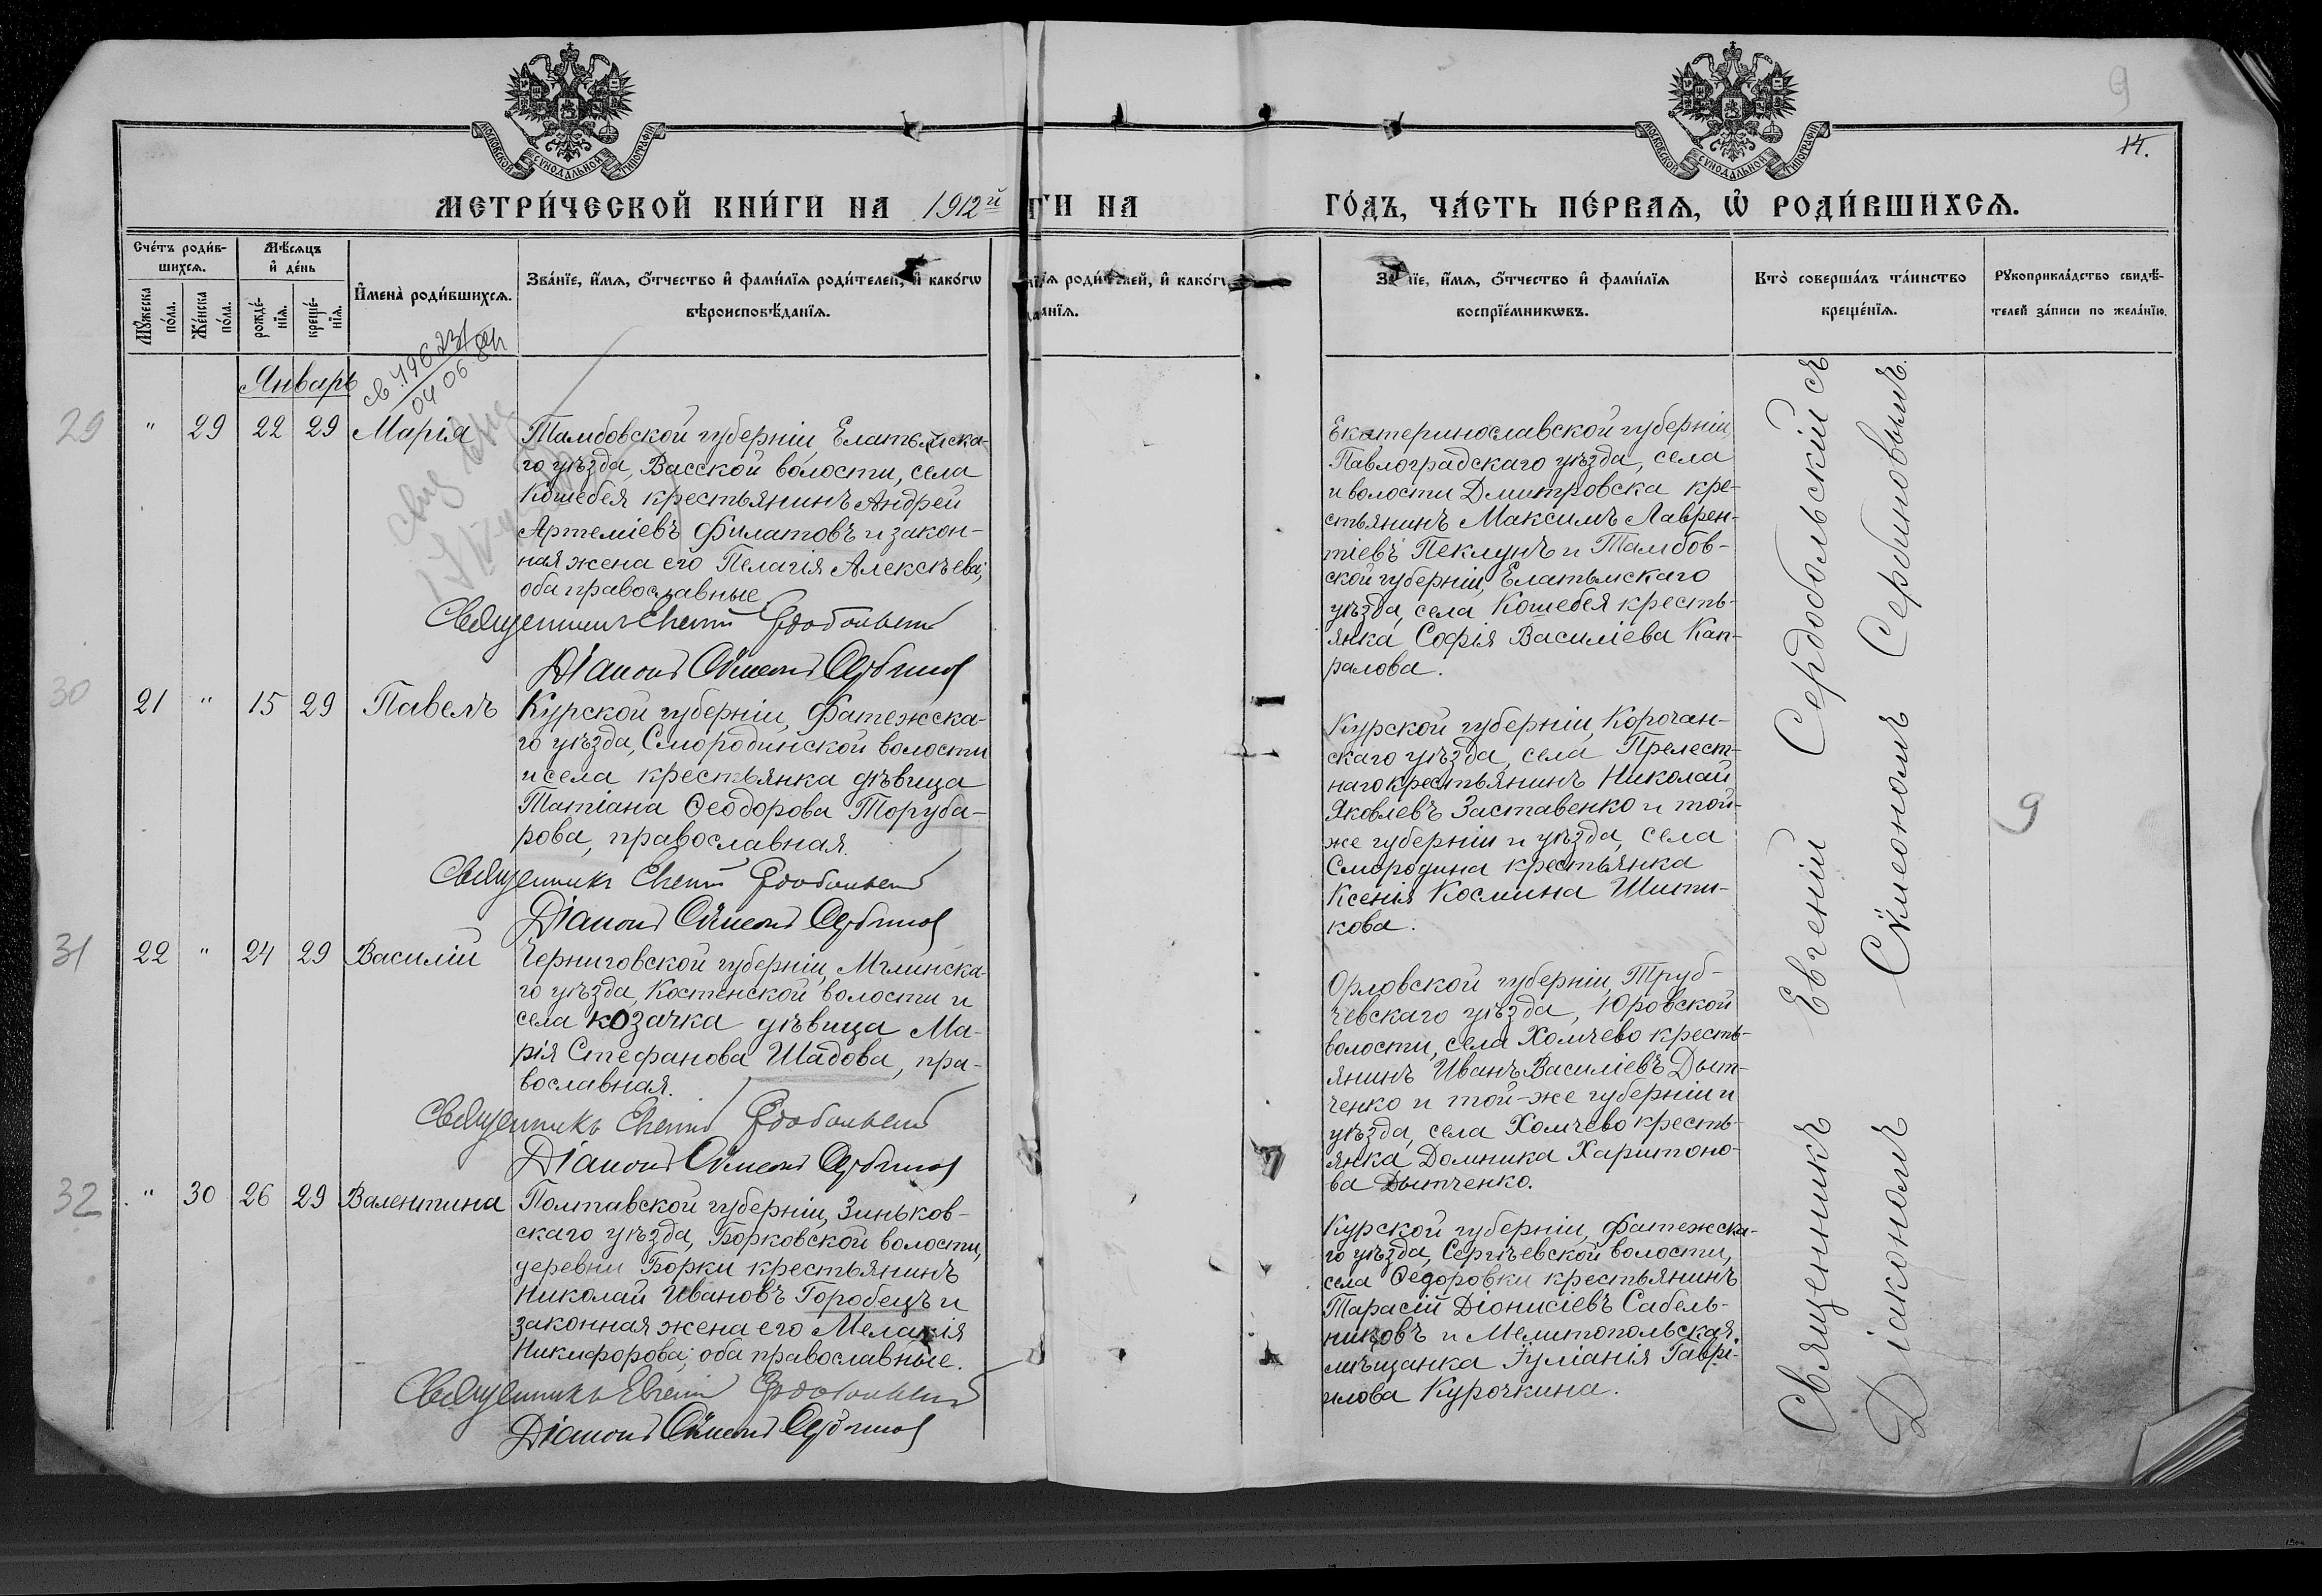 МОСКОВСКОЙ СУНОДАЛЬНОЙ ТИПОГРАФІИ
МОСКОВСКОЙ СУНОДАЛЬНОЙ ТИПОГРАФІИ
9
14.
МЕТРИ́ЧЕСКОЙ КНИ́ГИ НА 1912й
ГИ НА
ГО́ДЪ, ЧА́СТЬ ПЕ́РВАѦ, Ѡ҆ РОДИ́ВШИХСѦ.
Сче́тъ роди́в-
шихсѧ.
Мꙋ́жеска по́ла.
Же́нска по́ла.
Мѣ́сѧцъ
и҆ де́нь
рожде́-
нїѧ.
креще́-
нїѧ.
И҆мена̀ роди́вшихсѧ.
Зва́нїе, и҆́мѧ, ѻ҆́тчество и҆ фами́лїѧ роди́телей, и҆ како́гѡ
вѣроисповѣ́данїѧ.
лїѧ роди́телей, и҆ како́гѡ
данїѧ.
Зва́нїе, и҆́мѧ, ѻ҆́тчество и҆ фами́лїѧ
воспрїе́мникѡвъ.
Кто̀ соверша́лъ та́инство
креще́нїѧ.
Рꙋкоприкла́дство свидѣ́-
телей за́писи по жела́нїю.
Январь
29
" 29 22 29 Марія
Тамбовской губерніи, Елатьмска-
го уѣзда, Васской волости, села
Кошебея крестьянинъ Андрей
Артеміевъ Филатовъ и закон-
ная жена его Пелагія Алексѣева;
оба православные
Священникъ Евгеній Сердобольскій
Діаконъ Сѵмеонъ Сербиновъ
Екатеринославской губерніи,
Павлоградскаго уѣзда, села
и волости Дмитровска кре-
стьянинъ Максимъ Лаврен-
тіевъ Пеклунъ и Тамбов-
ской губерніи, Елатьмскаго
уѣзда, села Кошебея кресть-
янка Софія Василіева Кап-
ралова.
30
21 " 15 29 Павелъ
Курской губерніи, Фатежска-
го уѣзда, Смородинской волости
и села крестьянка дѣвица
Татіана Ѳеодорова Торуба-
рова, православная.
Священникъ Евгеній Сердобольскій
Діаконъ Сѵмеонъ Сербиновъ
Курской губерніи, Корочан-
скаго уѣзда, села Прелест-
наго крестьянинъ Николай
Яковлевъ Заставенко и той-
же губерніи и уѣзда, села
Смородина крестьянка
Ксенія Космина Шипи-
кова.
9
31
22 " 24 29 Василій
Черниговской губерніи, Мглинска-
го уѣзда, Костенской волости и
села козачка дѣвица Ма-
рія Стефанова Шадова, пра-
вославная.
Священникъ Евгеній Сердобольскій
Діаконъ Сѵмеонъ Сербиновъ
Орловской губерніи, Труб-
чевскаго уѣзда, Юровской
волости, села Холмчево кресть-
янинъ Иванъ Василіевъ Дыт-
ченко и той-же губерніи и
уѣзда, села Холмчево кресть-
янка Домника Харитоно-
ва Дытченко.
32
" 30 26 29 Валентина
Полтавской губерніи, Зиньков-
скаго уѣзда, Борковской волости,
деревни Борки крестьянинъ
Николай Ивановъ Горобецъ и
законная жена его Меланія
Никифорова; оба православные.
Священникъ Евгеній Сердобольскій
Діаконъ Сѵмеонъ Сербиновъ
Курской губерніи, Фатежска-
го уѣзда, Сергіевской волости,
села Ѳедоровки крестьянинъ
Тарасій Діонисіевъ Сабель-
никовъ и Мелитопольская
мѣщанка Іуліанія Гаврі-
илова Курочкина.
Священникъ Евгеній Сердобольскій съ
Діакономъ Сѵмеономъ Сербиновымъ.